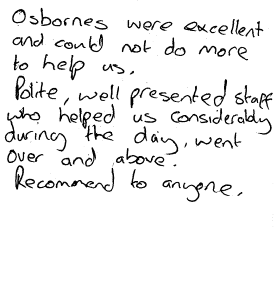 Osbornes were excellent
and could not do more
to help us.
Polite, well presented staff
who helped us considerably
during the day, went
over and above.
Recommend to anyone.